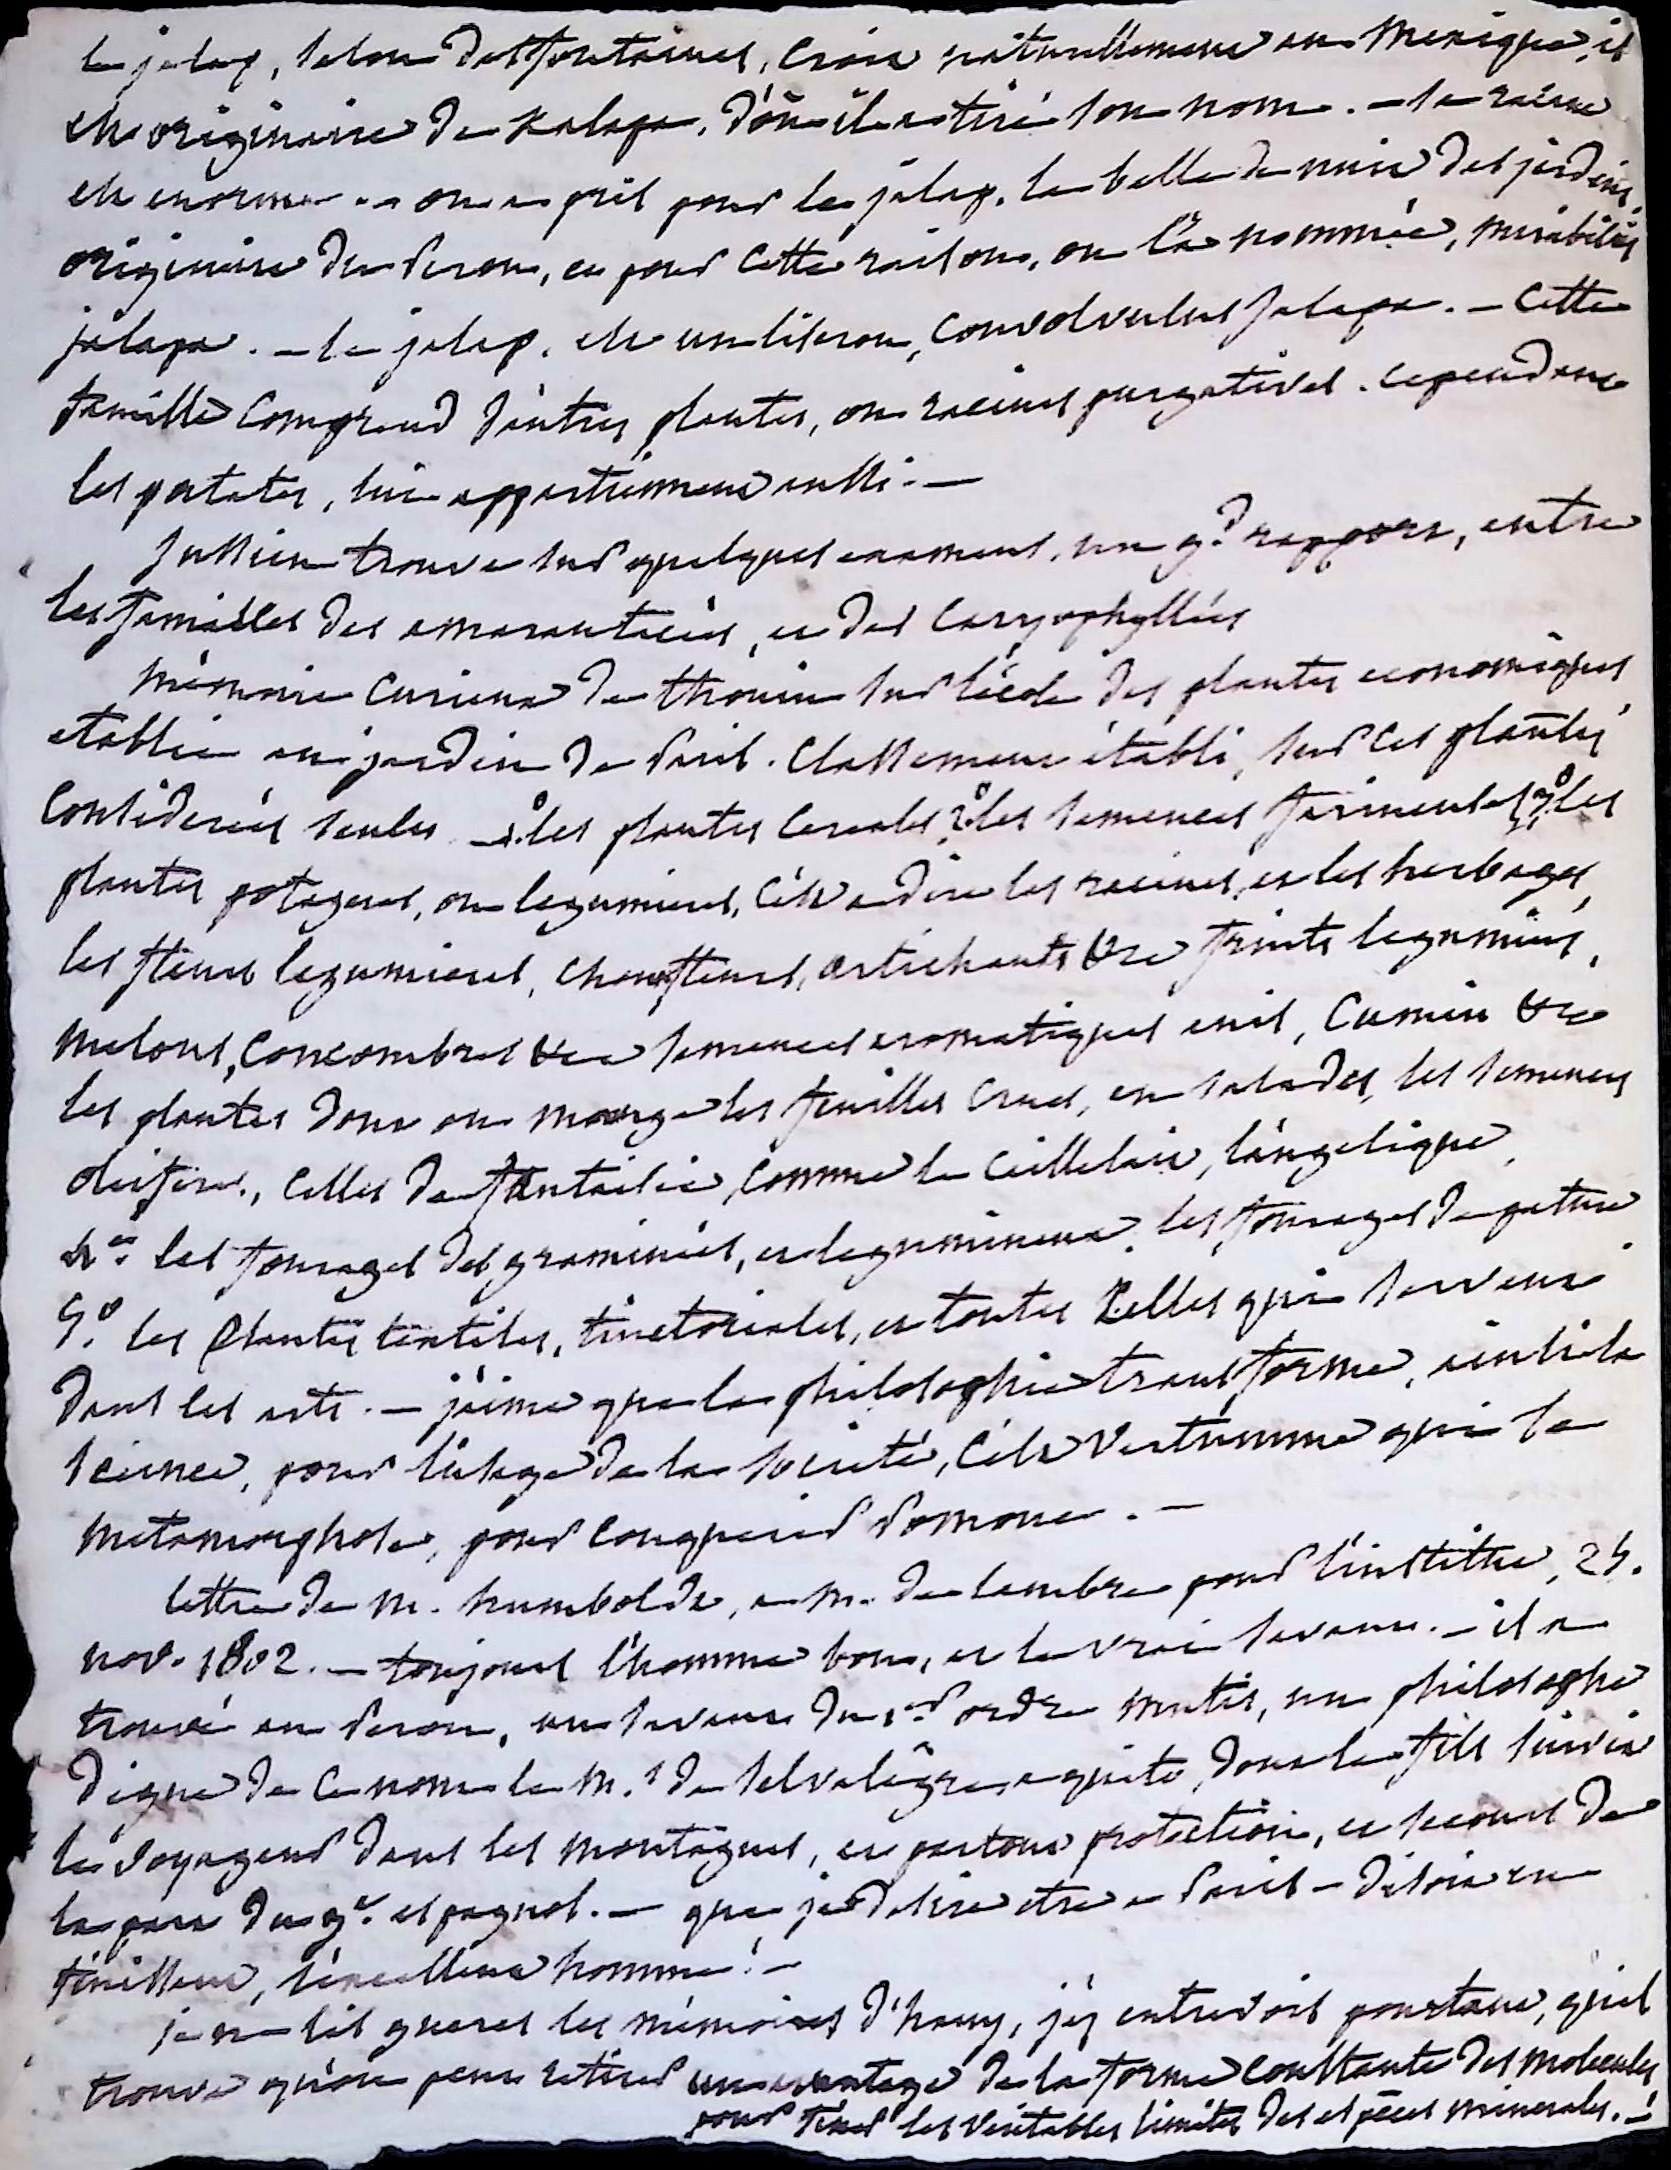 le jalap, selon desfontaines, croit naturellement au Mexique, il
est originaire de Xalapa, d'où il a tiré son nom. — la racine
est enorme. — on a pris pour le jalap, la belle de nuit des jardins,
originaire du Perou, et pour cette raison, on l'a nommée, mirabilis
jalapa. — le jalap, est un liseron, convolvulus jalapa. — Cette
famille comprend d'autres plantes, ou racines purgatives. cependant
les patates, lui appartiennent aussi. —
Jussieu trouve sur quelques examens, un gd rapport, entre
les familles des amarantacées, et des caryophyllées
Mémoire curieux de thouin sur l'école des plantes economiques
etablie au jardin de Paris. Classement établi, sur ces plantes
considerées seules — 1.° les plantes cereales 2.° les semences farineuses 3.° les
plantes potageres, ou legumieres, c'est a dire les racines, et les herbages,
les fleurs legumieres, choufleurs, artichauts &c fruits legumiers,
melons, concombres &c semences aromatiques anis, cumin &c
les plantes dont on mange les feuilles crues, en salades, les semences
oleiferes, celles de fantaisie, comme la , l'angelique,
4.° les fourages des graminées, et legumineux, les fourages de pature
5.° les plantes textiles, tinctoriales, et toutes celles qui servent
dans les arts. — j'aime que la philosophie transforme, ainsi la
science, pour l'usage de la societé, c'est Vertumne qui se
metamorphose, pour conquerir Pomone. —
lettre de M. humboldt, a M. delambre pour l'institut, 25.
nov. 1802. — toujours l'homme bon, et le vrai savant. — il a
trouvé au Perou, un savant du 1er ordre Mutis, un philosophe
digne de ce nom le M.s de selvalegre, a quito, dont le fils suivit
le voyageur dans les montagnes, et partout protection, et secours de
la part du gt espagnol. — que je desire etre a Paris — disoit en
finissant, l'excellent homme! —
je ne lis gueres les mémoires d'hauy, j'y entrevois pourtant, qu'il
trouve qu'on peut retirer un avantage de la forme constante des molecules
pour fixer les veritables limites des especes minerales. —